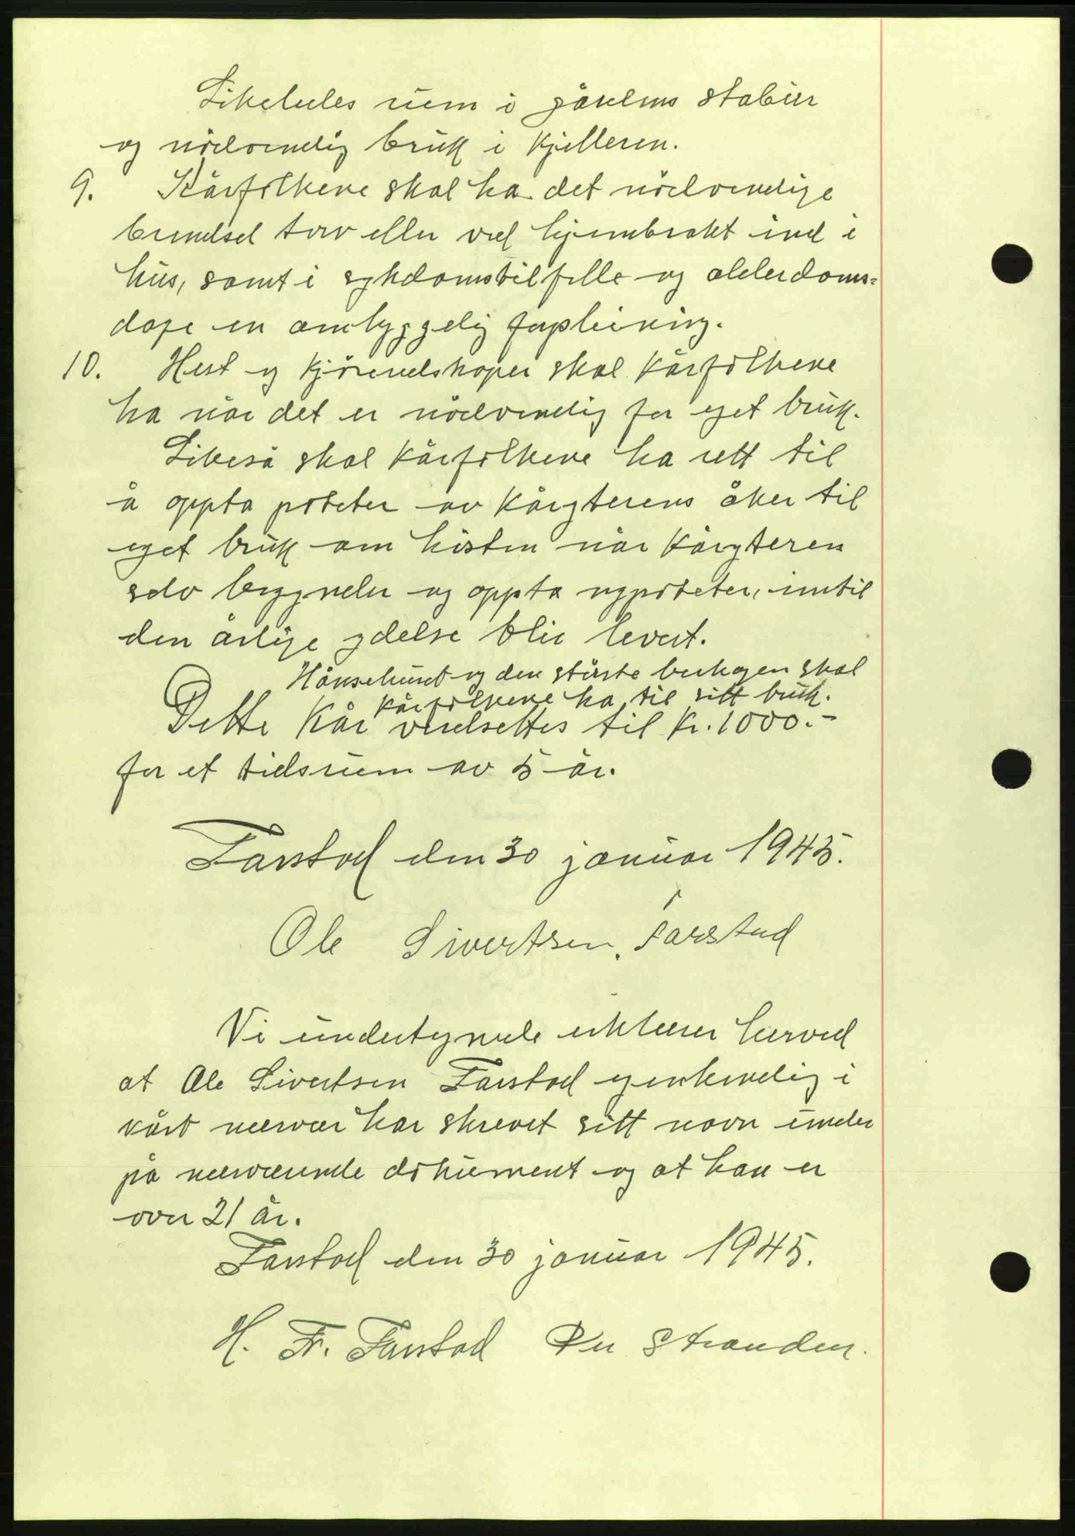 Likeledes rum i gårdens stabur
og nödvendig bruk i kjelleren.
9. Kårfolkene skal ha det nödvendige
brendsel torv eller ved hjembrakt ind i
hus, samt i sykdomstilfelle og alderdoms=
dage en omhyggelig forpleining.
10. Hest og kjöreredskaper skal kårfolkene
ha når det er nödvendig for eget bruk.
Likeså skal kårfolkene ha rett til
å oppta poteter av kårgterens åker til
eget bruk om hösten når kårgteren
selv begynder og oppta nypoteter, inntil
den årlige ydelse blir levert.
Hönsehuset og den störste berhagen skal
kårfolkene ha til sitt bruk.
Dette kår verdsettes til kr. 1000.-
for et tidsrum av 5 år.
Farstad den 30 januar 1945.
Ole Sivertsen. Farstad
Vi undertegnede erklærer herved
at Ole Sivertsen Farstad egenhendig i
vårt nærvær har skrevet sitt navn under
på nærværende dokument og at han er
over 21 år.
Farstad den 30 januar 1945.
H. Fr. Farstad Per Stranden.